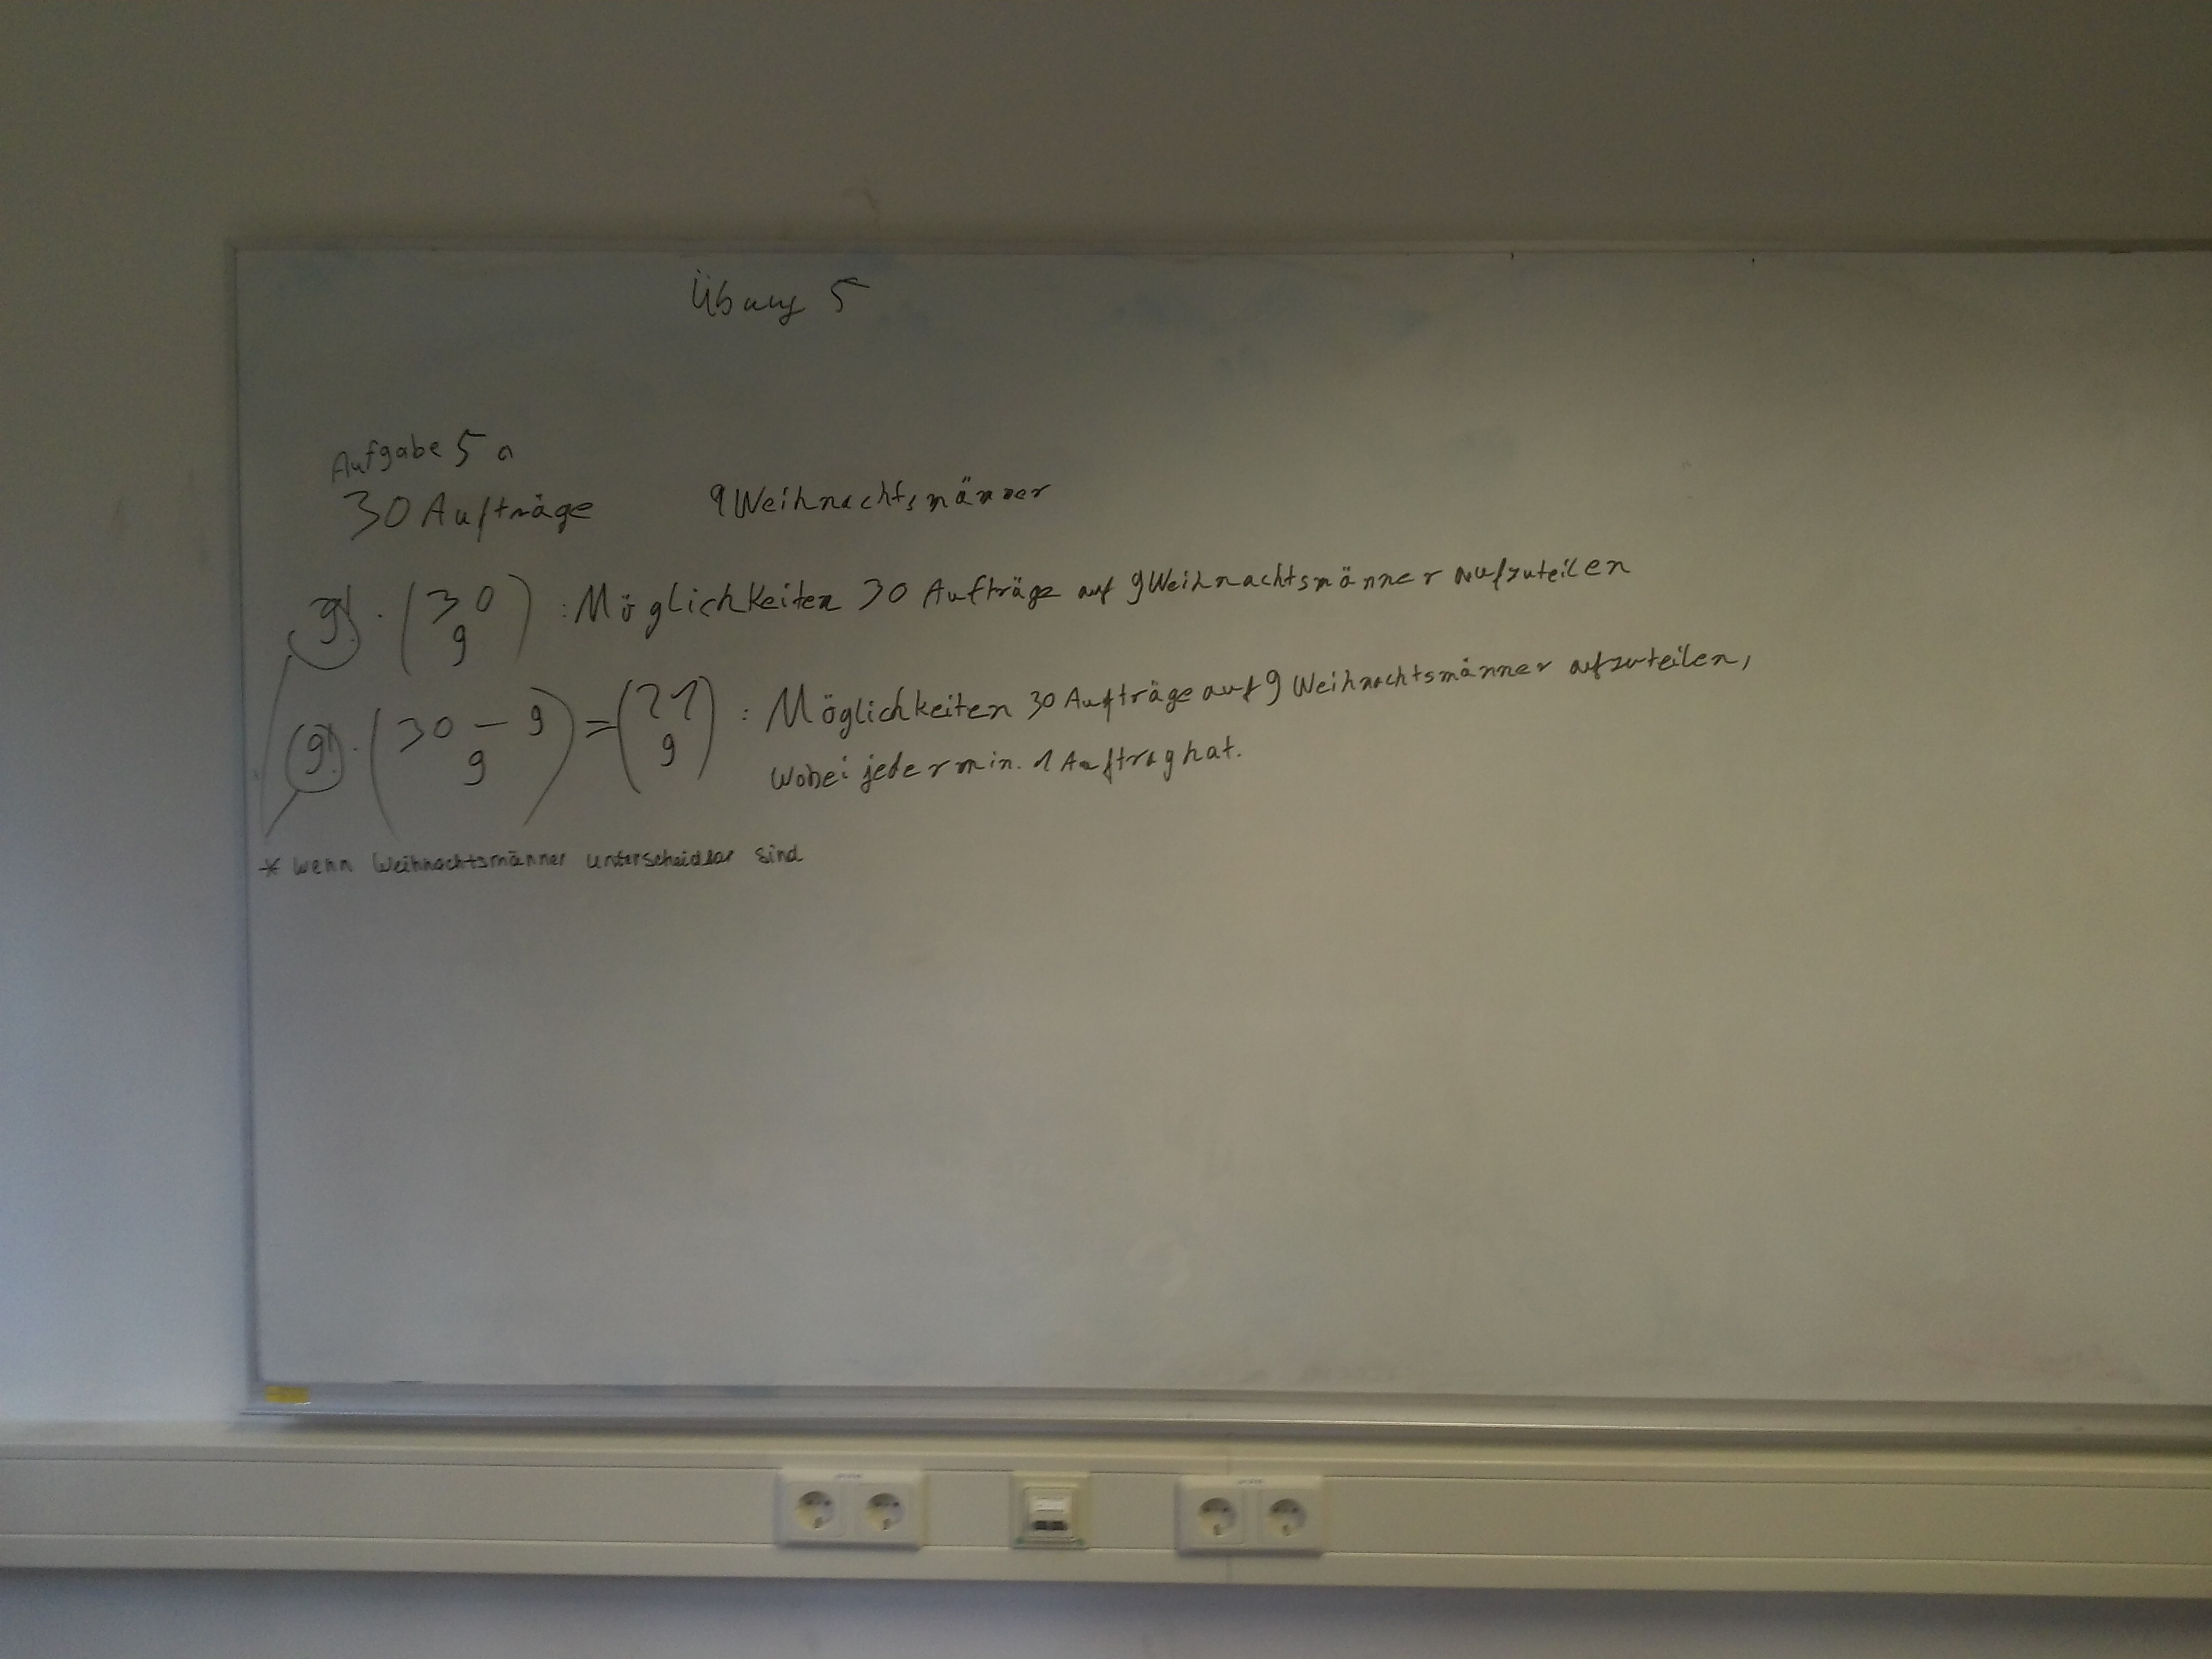 Übung 5
Aufgabe 5 a
30 Aufträge 9 Weihnachtsmänner
9! · (30 9) : Möglichkeiten 30 Aufträge auf 9 Weihnachtsmänner aufzuteilen
9! · (30 - 9 9) = (21 9) : Möglichkeiten 30 Aufträge auf 9 Weihnachtsmänner aufzuteilen,
wobei jeder min. 1 Auftrag hat.
* wenn Weihnachtsmänner unterscheidbar sind